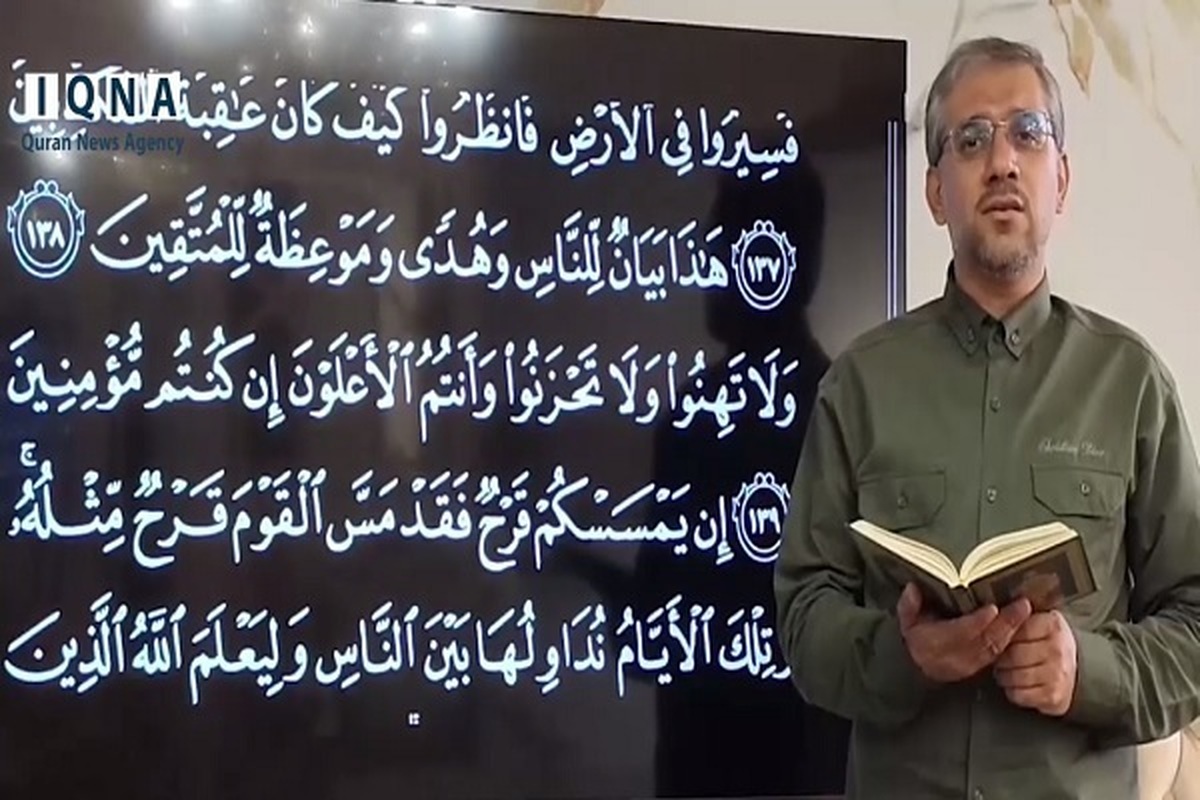 IQNA
Quran News Agency
فَسِيرُوا۟ فِى ٱلْأَرْضِ فَٱنظُرُوا۟ كَيْفَ كَانَ عَـٰقِبَةُ
١٣٧ هَـٰذَا بَيَانٌ لِّلنَّاسِ وَهُدًى وَمَوْعِظَةٌ لِّلْمُتَّقِينَ ١٣٨
وَلَا تَهِنُوا۟ وَلَا تَحْزَنُوا۟ وَأَنتُمُ ٱلْأَعْلَوْنَ إِن كُنتُم مُّؤْمِنِينَ
١٣٩ إِن يَمْسَسْكُمْ قَرْحٌ فَقَدْ مَسَّ ٱلْقَوْمَ قَرْحٌ مِّثْلُهُۥ ۚ
وَتِلْكَ ٱلْأَيَّامُ نُدَاوِلُهَا بَيْنَ ٱلنَّاسِ وَلِيَعْلَمَ ٱللَّهُ ٱلَّذِينَ
Christian Dior